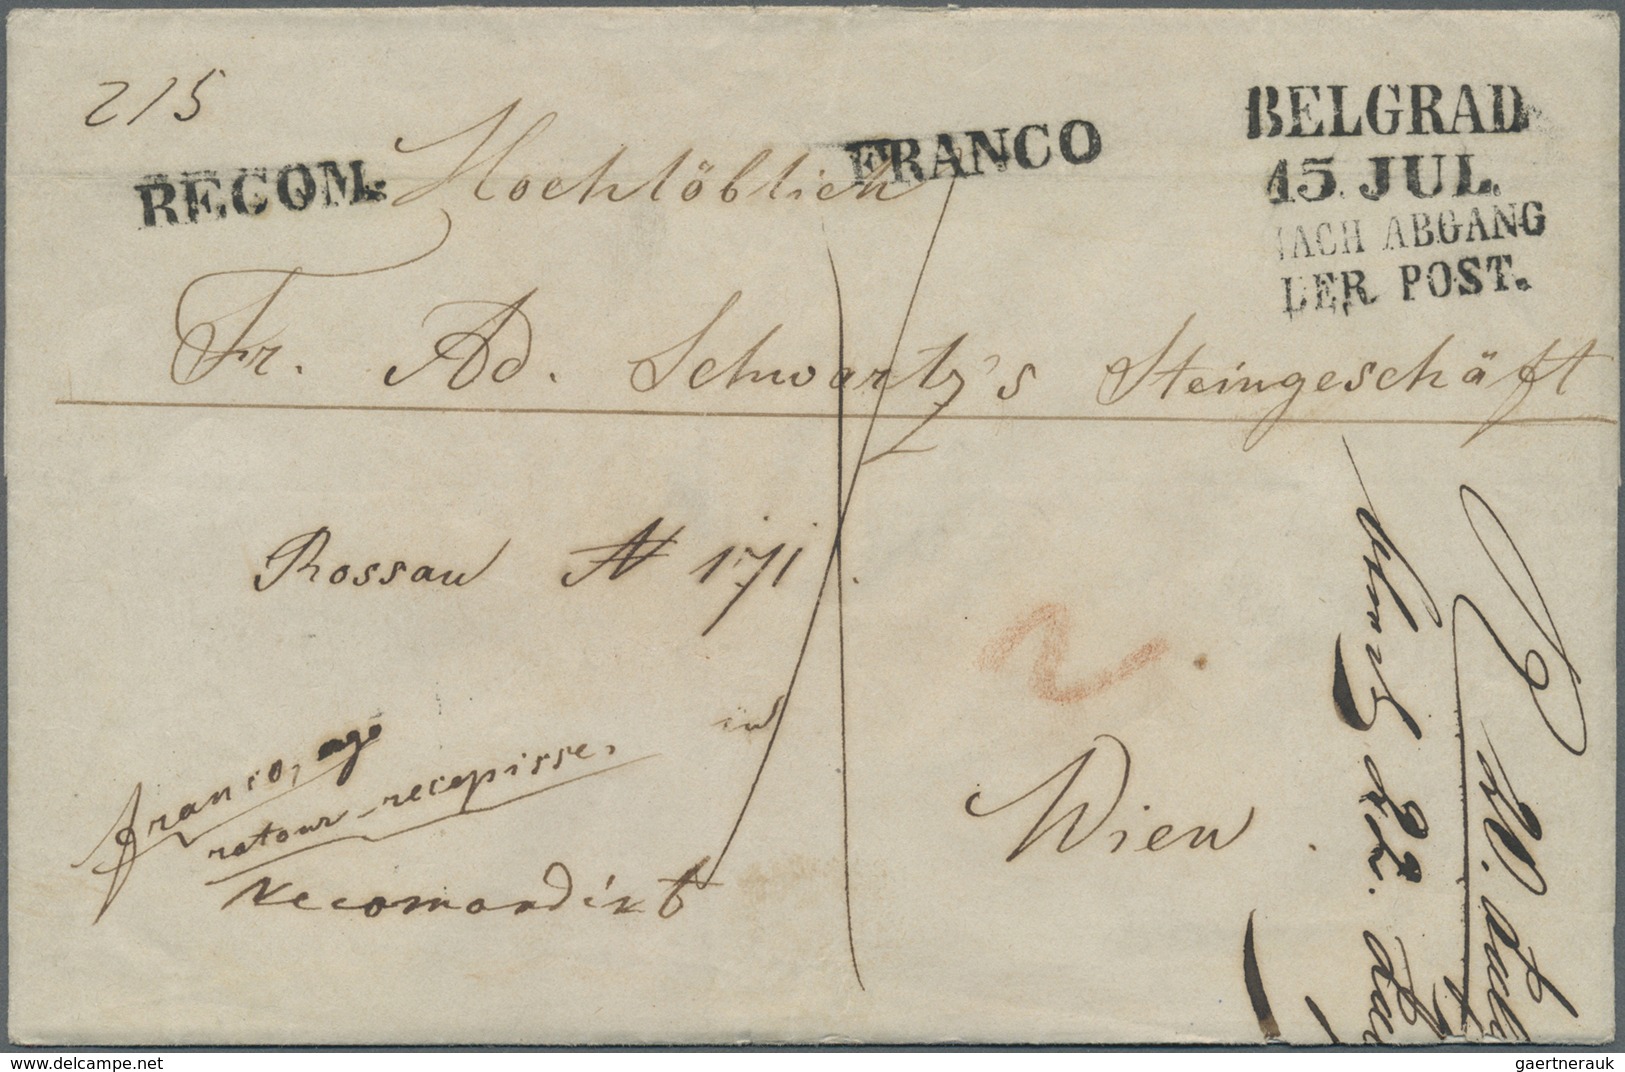 215
RECOM.
FRANCO
BELGRAD
15. JUL.
NACH ABGANG
DER. POST.
Hochlöblich
Fr. Ad. Schwartz's Steingeschäft
Rossau N 171.
in
Wien.
franco, ago
retour-recepisse,
Recomandirt
2
delcampe.net
gaertnerauk